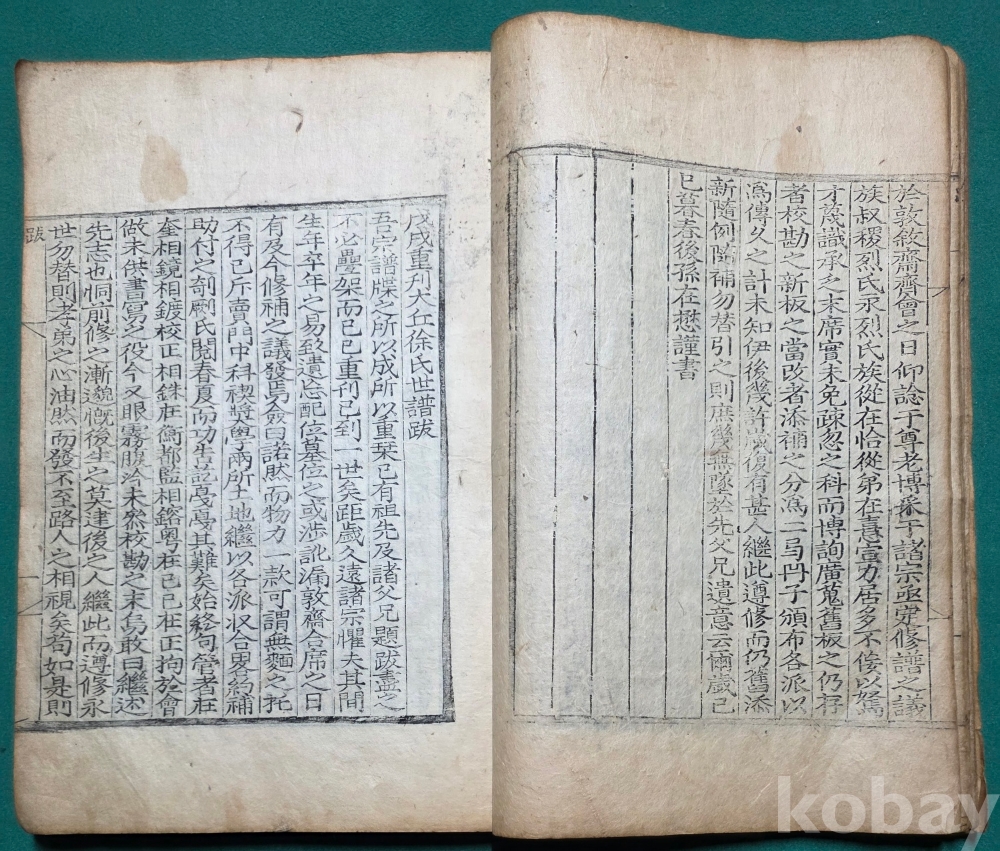 於敦敘齋齋會之日仰諗于尊老博采于諸宗亟定修譜之議
族叔稷烈氏永烈氏族從在恰從弟在憲宣力居多不佞以駑
才蔑識承乏末席實未免疎忽之科而博詢廣蒐舊板之仍存
者校勘之新板之當改者添補之分爲二弓冊子頒布各派以
爲傳久之計未知伊後幾許歲復有甚人繼此遵修而仍舊添
新隨例隨補勿替引之則庶幾無墜於先父兄遺意云爾歲己
巳暮春後孫在懋謹書
戊戌重刋大丘徐氏世譜跋
吾宗譜牒之所以成所以重椠已有祖先及諸父兄題跋盡之
不必疊架而已已重刋已到一世矣距歲久遠諸宗懼夫其間
生年卒年之易致遺忘配位墓位之或涉訛漏敦齋合席之日
有及今修補之議發焉僉曰諾然而物力一款可謂無麵之托
不得已斥賣門中科稧奬學兩所土地繼以各派收合畧爲補
助付之剞劂氏閱春夏而功生訖戞戞其難矣始終句管者在
奎相鏡相鍍校正相銖在衡都監相鎔粤在己巳在正拘於會
做未供書寫之役今又眼霧腹冷未參校勘之末烏敢曰繼述
先志也恫前修之漸邈慨後生之莫逮後之人繼此而遵修永
世勿替則孝弟之心油然而發不至路人之相視矣苟如是則
跋
kobay